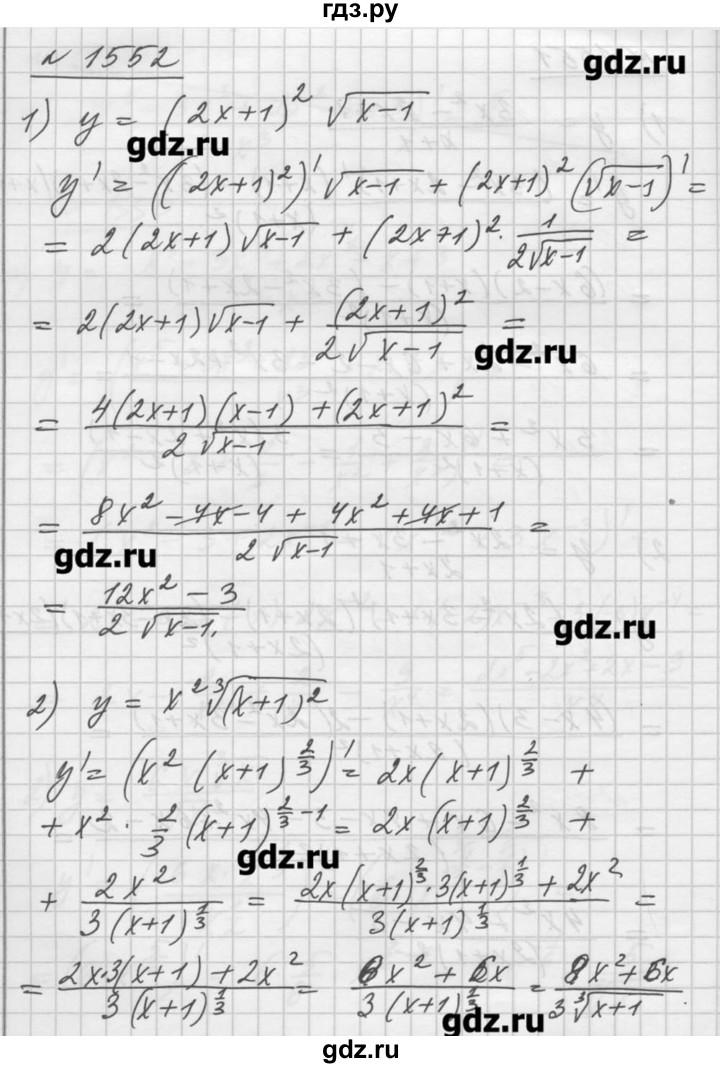 гдз.ру
№ 1552
gdz.ru
1) y = (2x+1)² √(x-1)
gdz.ru
y' = ((2x+1)²)' √(x-1) + (2x+1)² (√(x-1))' =
= 2(2x+1)√(x-1) + (2x+1)² · 1/(2√(x-1)) =
= 2(2x+1)√(x-1) + (2x+1)²/(2√(x-1)) =
gdz.ru
= (4(2x+1)(x-1) + (2x+1)²)/(2√(x-1)) =
= (8x² - 4x - 4 + 4x² + 4x + 1)/(2√(x-1)) =
gdz.ru
= (12x² - 3)/(2√(x-1)).
gdz.ru
2) y = x² ∛((x+1)²)
y' = (x² (x+1)^(2/3))' = 2x(x+1)^(2/3) +
+ x² · 2/3 (x+1)^(2/3 - 1) = 2x(x+1)^(2/3) +
gdz.ru
+ 2x²/(3(x+1)^(1/3)) = (2x(x+1)^(2/3) · 3(x+1)^(1/3) + 2x²)/(3(x+1)^(1/3)) =
= (2x·3(x+1) + 2x²)/(3(x+1)^(1/3)) = (6x² + 6x)/(3(x+1)^(1/3)) = (8x² + 6x)/(3∛(x+1))
gdz.ru
gdz.ru